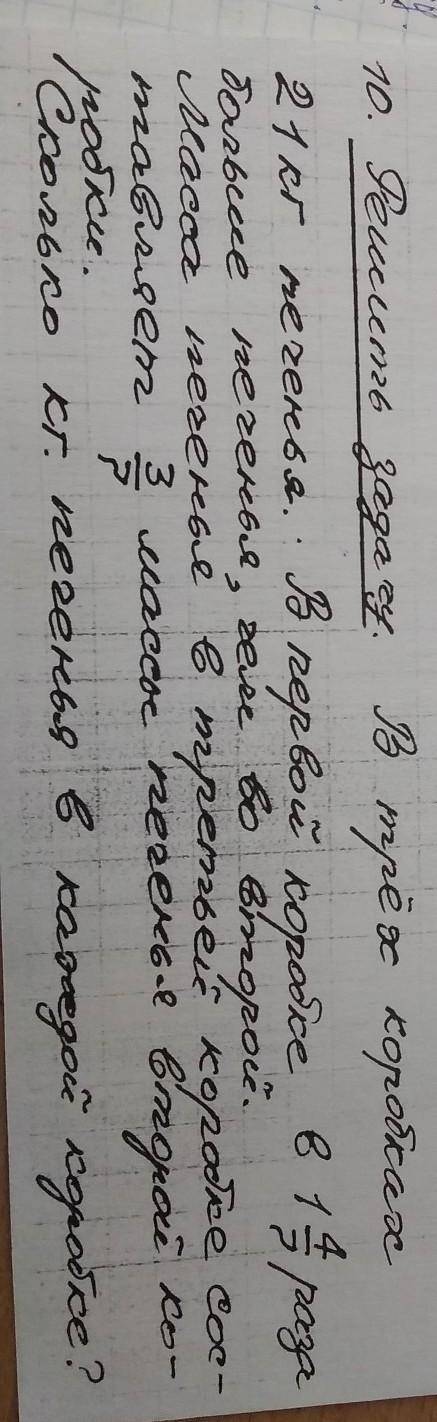 10. Решить задачу. В трёх коробках
21 кг печенья. В первой коробке в 1 4/7 раза
больше печенья, чем во второй.
Масса печенья в третьей коробке сос-
тавляет 3/7 массы печенья второй ко-
робки.
Сколько кг. печенья в каждой коробке?